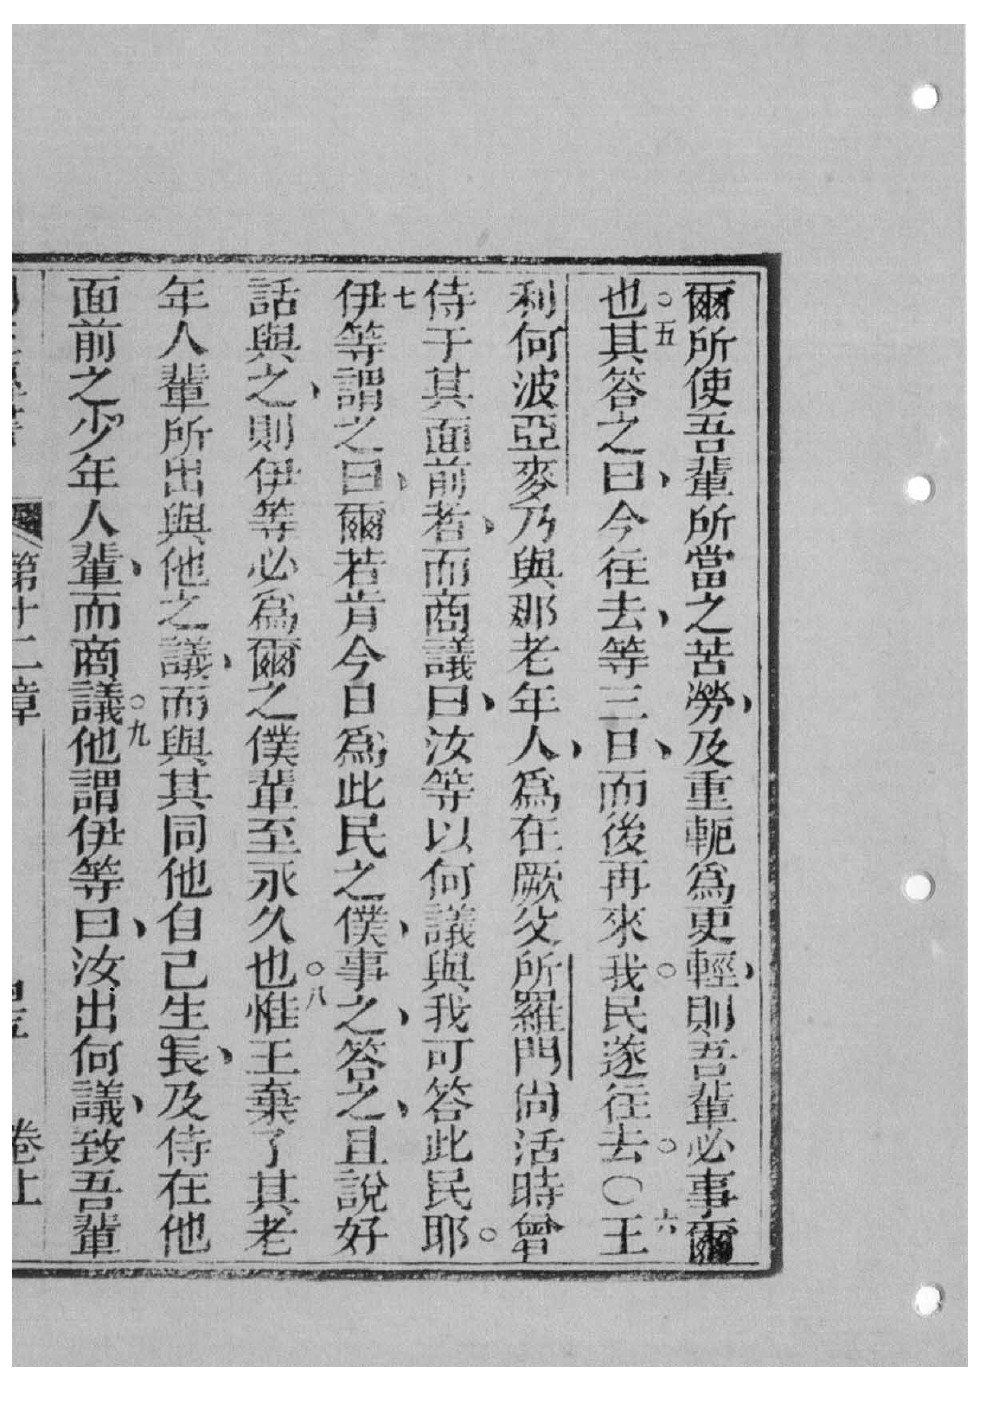 爾所使吾輩所當之苦勞、及重軛爲更輕、則吾輩必事爾
也。五其答之曰、今往去、等三日、而後再來我。民遂往去。〇六王
利何波亞麥乃與那老年人、爲在厥父所羅門尚活時曾
侍于其面前者、而商議曰、汝等以何議與我可答此民耶。
七伊等謂之曰、爾若肯今日爲此民之僕、事之、答之、且說好
話與之、則伊等必爲爾之僕輩至永久也。八惟王棄了其老
年人輩所出與他之議、而與其同他自己生長、及侍在他
面前之少年人輩、而商議。九他謂伊等曰、汝出何議、致吾輩
第十二章 卷上